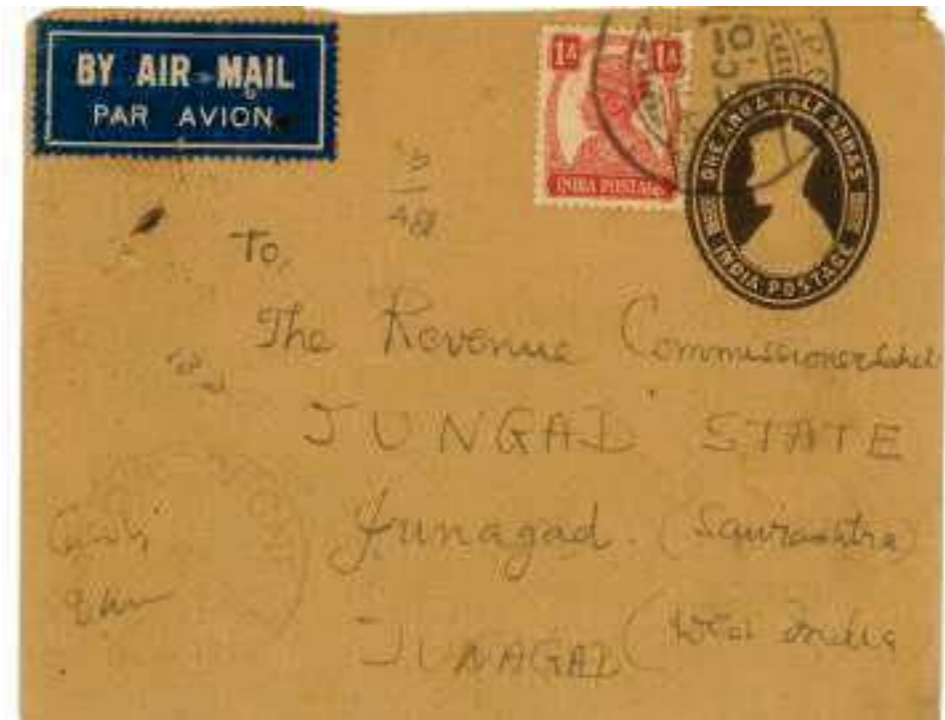 BY AIR MAIL
PAR AVION
1A 1A
INDIA POSTAGE
ONE AND A HALF ANNAS
INDIA POSTAGE
To,
The Revenue Commissioner Saheb
JUNGAD STATE
Junagad. (Saurashtra)
JUNAGAD (West India